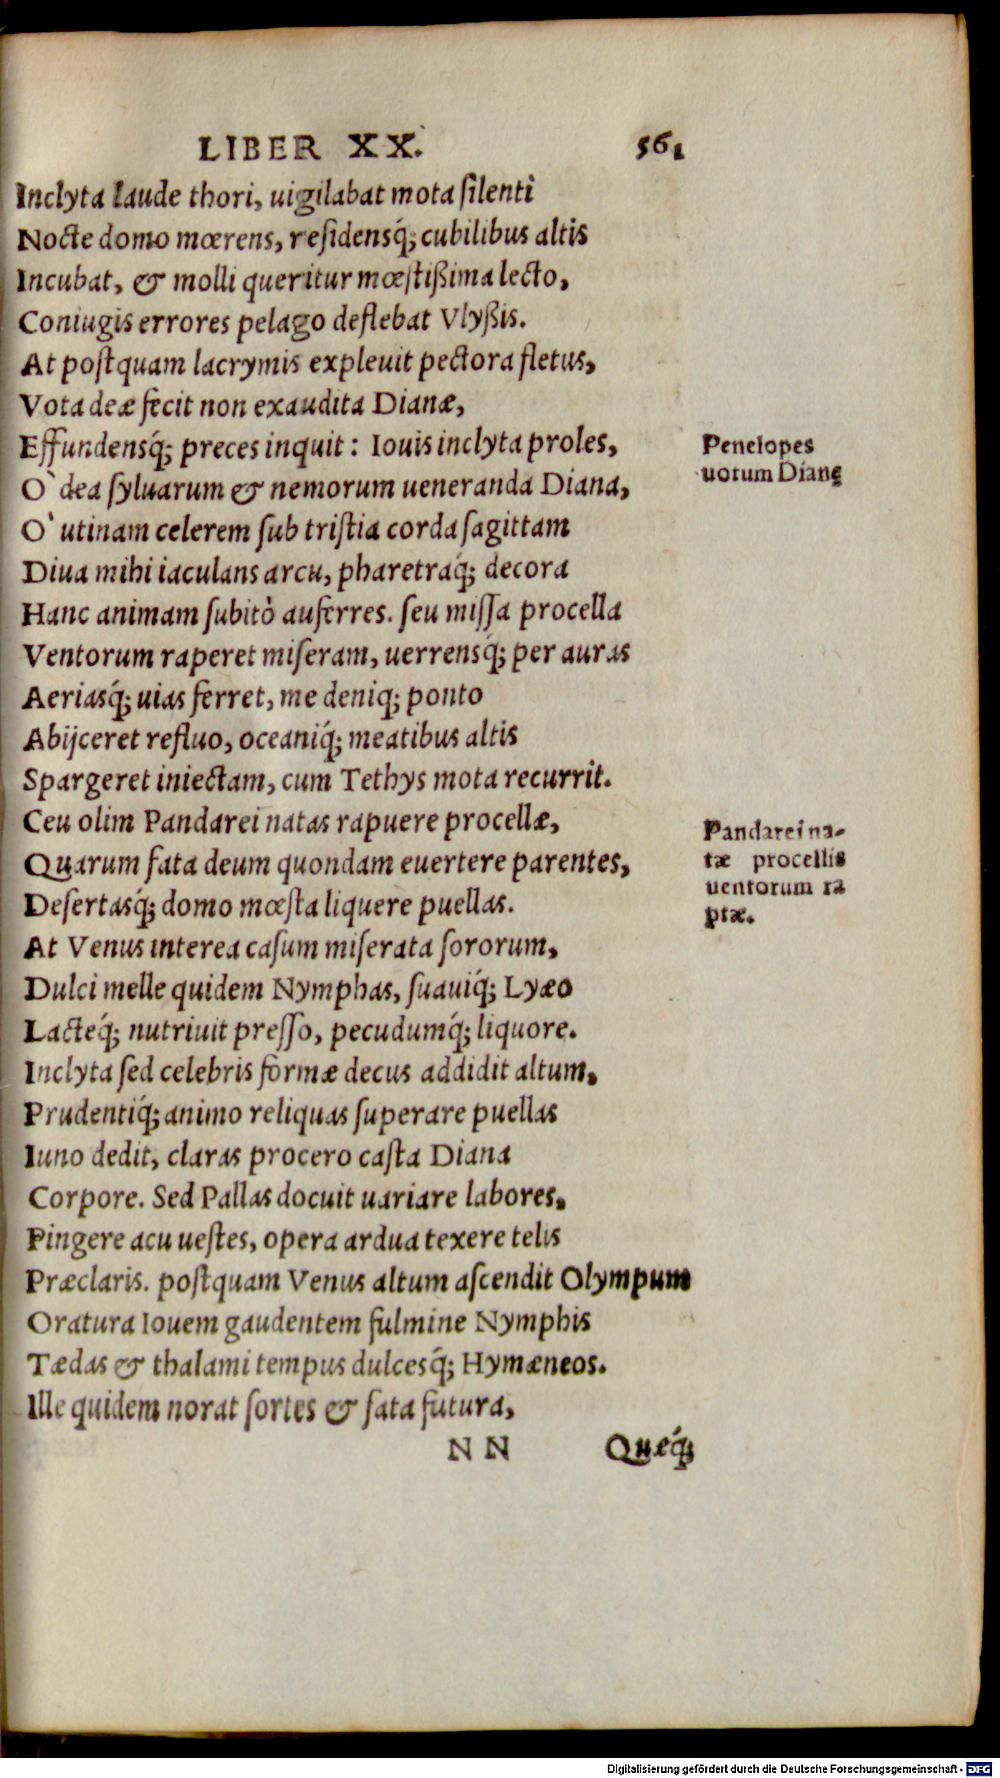 LIBER XX. 561
Inclyta laude thori, uigilabat mota ſilenti
Nocte domo mœrens, reſidensq́; cubilibus altis
Incubat, & molli queritur mœstißima lecto,
Coniugis errores pelago deflebat Vlyßis.
At postquam lacrymis expleuit pectora fletus,
Vota deæ fecit non exaudita Dianæ,
Effundensq́; preces inquit: Iouis inclyta proles,
O` dea ſyluarum & nemorum ueneranda Diana,
O` utinam celerem ſub tristia corda ſagittam
Diua mihi iaculans arcu, pharetraq́; decora
Hanc animam ſubitò auferres. ſeu miſſa procella
Ventorum raperet miſeram, uerrensq́; per auras
Aeriasq́; uias ferret, me deniq; ponto
Abijceret refluo, oceaniq́; meatibus altis
Spargeret iniectam, cum Tethys mota recurrit.
Ceu olim Pandarei natas rapuere procellæ,
Quarum fata deum quondam euertere parentes,
Deſertasq́; domo mœsta liquere puellas.
At Venus interea caſum miſerata ſororum,
Dulci melle quidem Nymphas, ſuauiq́; Lyæo
Lacteq́; nutriuit preſſo, pecudumq́; liquore.
Inclyta ſed celebris formæ decus addidit altum,
Prudentiq́; animo reliquas ſuperare puellas
Iuno dedit, claras procero casta Diana
Corpore. Sed Pallas docuit uariare labores,
Pingere acu uestes, opera ardua texere telis
Præclaris. postquam Venus altum aſcendit Olympum
Oratura Iouem gaudentem fulmine Nymphis
Tædas & thalami tempus dulcesq́; Hymæneos.
Ille quidem norat ſortes & fata futura,
NN Quæq́;
Penelopes
uotum Dianę
Pandarei na-
tæ procellis
uentorum ra
ptæ.
Digitalisierung gefördert durch die Deutsche Forschungsgemeinschaft - DFG